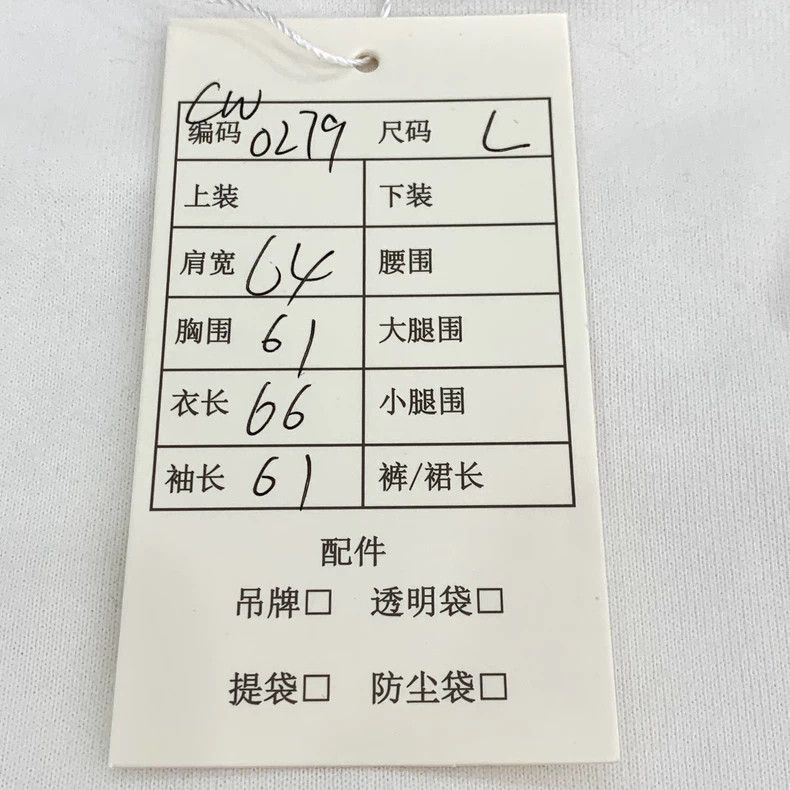 CW
编码 0279 尺码 L
上装 下装
肩宽 64 腰围
胸围 61 大腿围
衣长 66 小腿围
袖长 61 裤/裙长
配件
吊牌□ 透明袋□
提袋□ 防尘袋□